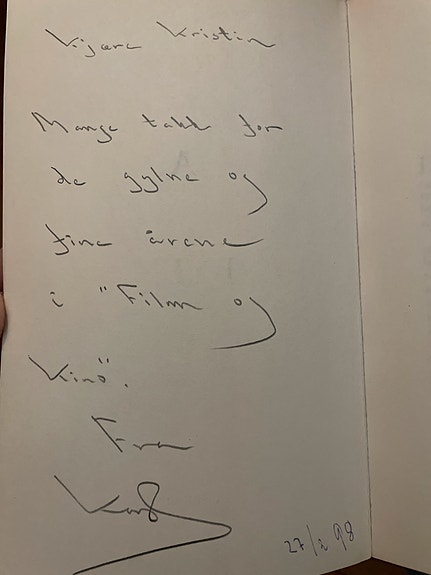 Kjære Kristin
Mange takk for
de gylne og
fine årene
i "Film og
Kino".
Fra
27/2 98